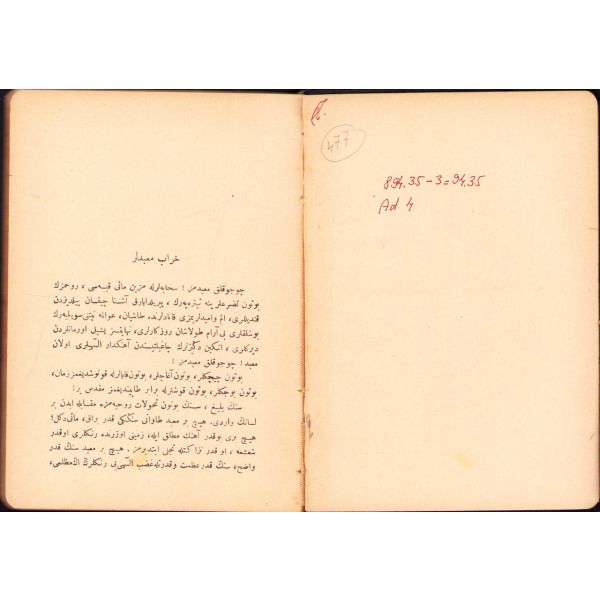 خراب معبدلر
چوجوقلق معبدمز ! سحابه‌لرله مزین مائی قبه‌سی ، روحمزك
بوتون تضرعلرینه تیتره‌یه‌رك ، پیریلدایارق آشنا چیقان ییلدیزدن
قندیللری ، الم وامیدلریمزی قانادلارند. طاشیان، عوالمه نینی سویلیه‌رك
بوشلقلری بی آرام طولاشان روزكارلری، نهایتسز یشیل اورمانلردن
دیركلری ، انكین دكزلرك چاغیلتیسندن آهنكدار الهیلری اولان
معبد ! چوجوقلق معبدمز !
بوتون چیچكلر، بوتون آغاجلر، بوتون قایالرله قونوشدیغمز زمان،
بوتون بوجكلر، بوتون قوشلرله برابر طاپیندیغمز مقدس یر !
سنك بلیغ ، سنك بوتون تحولات روحیه‌مزه مقابله ایدن بر
لسانك واردی. هیچ بر معبد طاوانی سنككی قدر براق، مائی دكل؛
هیچ بری بوقدر آهنك مطلق ایله، زمینی اوزرنده رنكلری اوقدر
شعشعه ، او قدر تجلی ایتدیرمز . هیچ بر معبد سنك قدر
واضح، سنك قدر عظمت وقدرتله غضب الهی‌یی رنكلرك اك مظلمی،
477
894.35-3=94.35
Ad 4